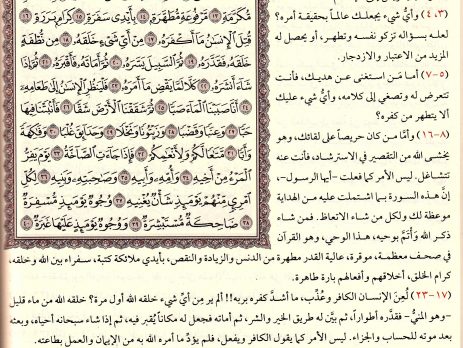 (٣، ٤) وأيُّ شيء يجعلك عالمًا بحقيقة أمره؟
لعله بسؤاله تزكو نفسه وتطهر، أو يحصل له
المزيد من الاعتبار والازدجار.
(٥-٧) أما مَن استغنى عن هديك، فأنت
تتعرض له وتصغي إلى كلامه، وأيُّ شيء عليك
ألا يتطهر من كفره؟
(٨-١٦) وأمَّا من كان حريصًا على لقائك، وهو
يخشى الله من التقصير في الاسترشاد، فأنت عنه
تتشاغل. ليس الأمر كما فعلت -أيها الرسول-،
إن هذه السورة بما اشتملت عليه من الهداية
موعظة لك ولكل من شاء الاتعاظ. فمن شاء
ذكر الله وَأْتَمَّ بوحيه، هذا الوحي، وهو القرآن
في صحف معظمة، موقرة، عالية القدر مطهرة من الدنس والزيادة والنقص، بأيدي ملائكة كتبة، سفراء بين الله وخلقه،
كرام الخلق، أخلاقهم وأفعالهم بارة طاهرة.
(١٧-٢٣) لُعِنَ الإنسان الكافر وعُذِّب، ما أشدَّ كفره بربه!! ألم ير مِن أيِّ شيء خلقه الله أول مرة؟ خلقه الله من ماء قليل
-وهو المنيُّ- فقدَّره أطوارا, ثم بين له طريق الخير والشر، ثم أماته فجعل له مكانًا يُقبر فيه، ثم إذا شاء سبحانه أحياه، وبعثه
بعد موته للحساب والجزاء. ليس الأمر كما يقول الكافر ويفعل، فلم يؤدِّ ما أمره الله به من الإيمان والعمل بطاعته.
مُّكَرَّمَةٍ ١٣ مَّرْفُوعَةٍ مُّطَهَّرَةٍ ١٤ بِأَيْدِي سَفَرَةٍ ١٥ كِرَامٍ بَرَرَةٍ ١٦
قُتِلَ الْإِنسَانُ مَا أَكْفَرَهُ ١٧ مِنْ أَيِّ شَيْءٍ خَلَقَهُ ١٨ مِن نُّطْفَةٍ
خَلَقَهُ فَقَدَّرَهُ ١٩ ثُمَّ السَّبِيلَ يَسَّرَهُ ٢٠ ثُمَّ أَمَاتَهُ فَأَقْبَرَهُ ٢١ ثُمَّ إِذَا
شَاءَ أَنشَرَهُ ٢٢ كَلَّا لَمَّا يَقْضِ مَا أَمَرَهُ ٢٣ فَلْيَنظُرِ الْإِنسَانُ إِلَى طَعَامِهِ
٢٤ أَنَّا صَبَبْنَا الْمَاءَ صَبًّا ٢٥ ثُمَّ شَقَقْنَا الْأَرْضَ شَقًّا ٢٦ فَأَنبَتْنَا فِيهَا
حَبًّا ٢٧ وَعِنَبًا وَقَضْبًا ٢٨ وَزَيْتُونًا وَنَخْلًا ٢٩ وَحَدَائِقَ غُلْبًا ٣٠ وَفَاكِهَةً
وَأَبًّا ٣١ مَّتَاعًا لَّكُمْ وَلِأَنْعَامِكُمْ ٣٢ فَإِذَا جَاءَتِ الصَّاخَّةُ ٣٣ يَوْمَ يَفِرُّ
الْمَرْءُ مِنْ أَخِيهِ ٣٤ وَأُمِّهِ وَأَبِيهِ ٣٥ وَصَاحِبَتِهِ وَبَنِيهِ ٣٦ لِكُلِّ
امْرِئٍ مِّنْهُمْ يَوْمَئِذٍ شَأْنٌ يُغْنِيهِ ٣٧ وُجُوهٌ يَوْمَئِذٍ مُّسْفِرَةٌ
٣٨ ضَاحِكَةٌ مُّسْتَبْشِرَةٌ ٣٩ وَوُجُوهٌ يَوْمَئِذٍ عَلَيْهَا غَبَرَةٌ ٤٠